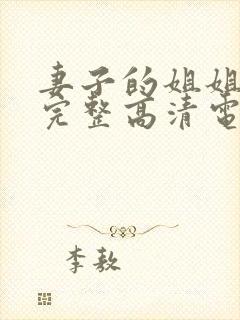 妻子的姐姐
完整高清電
李敖